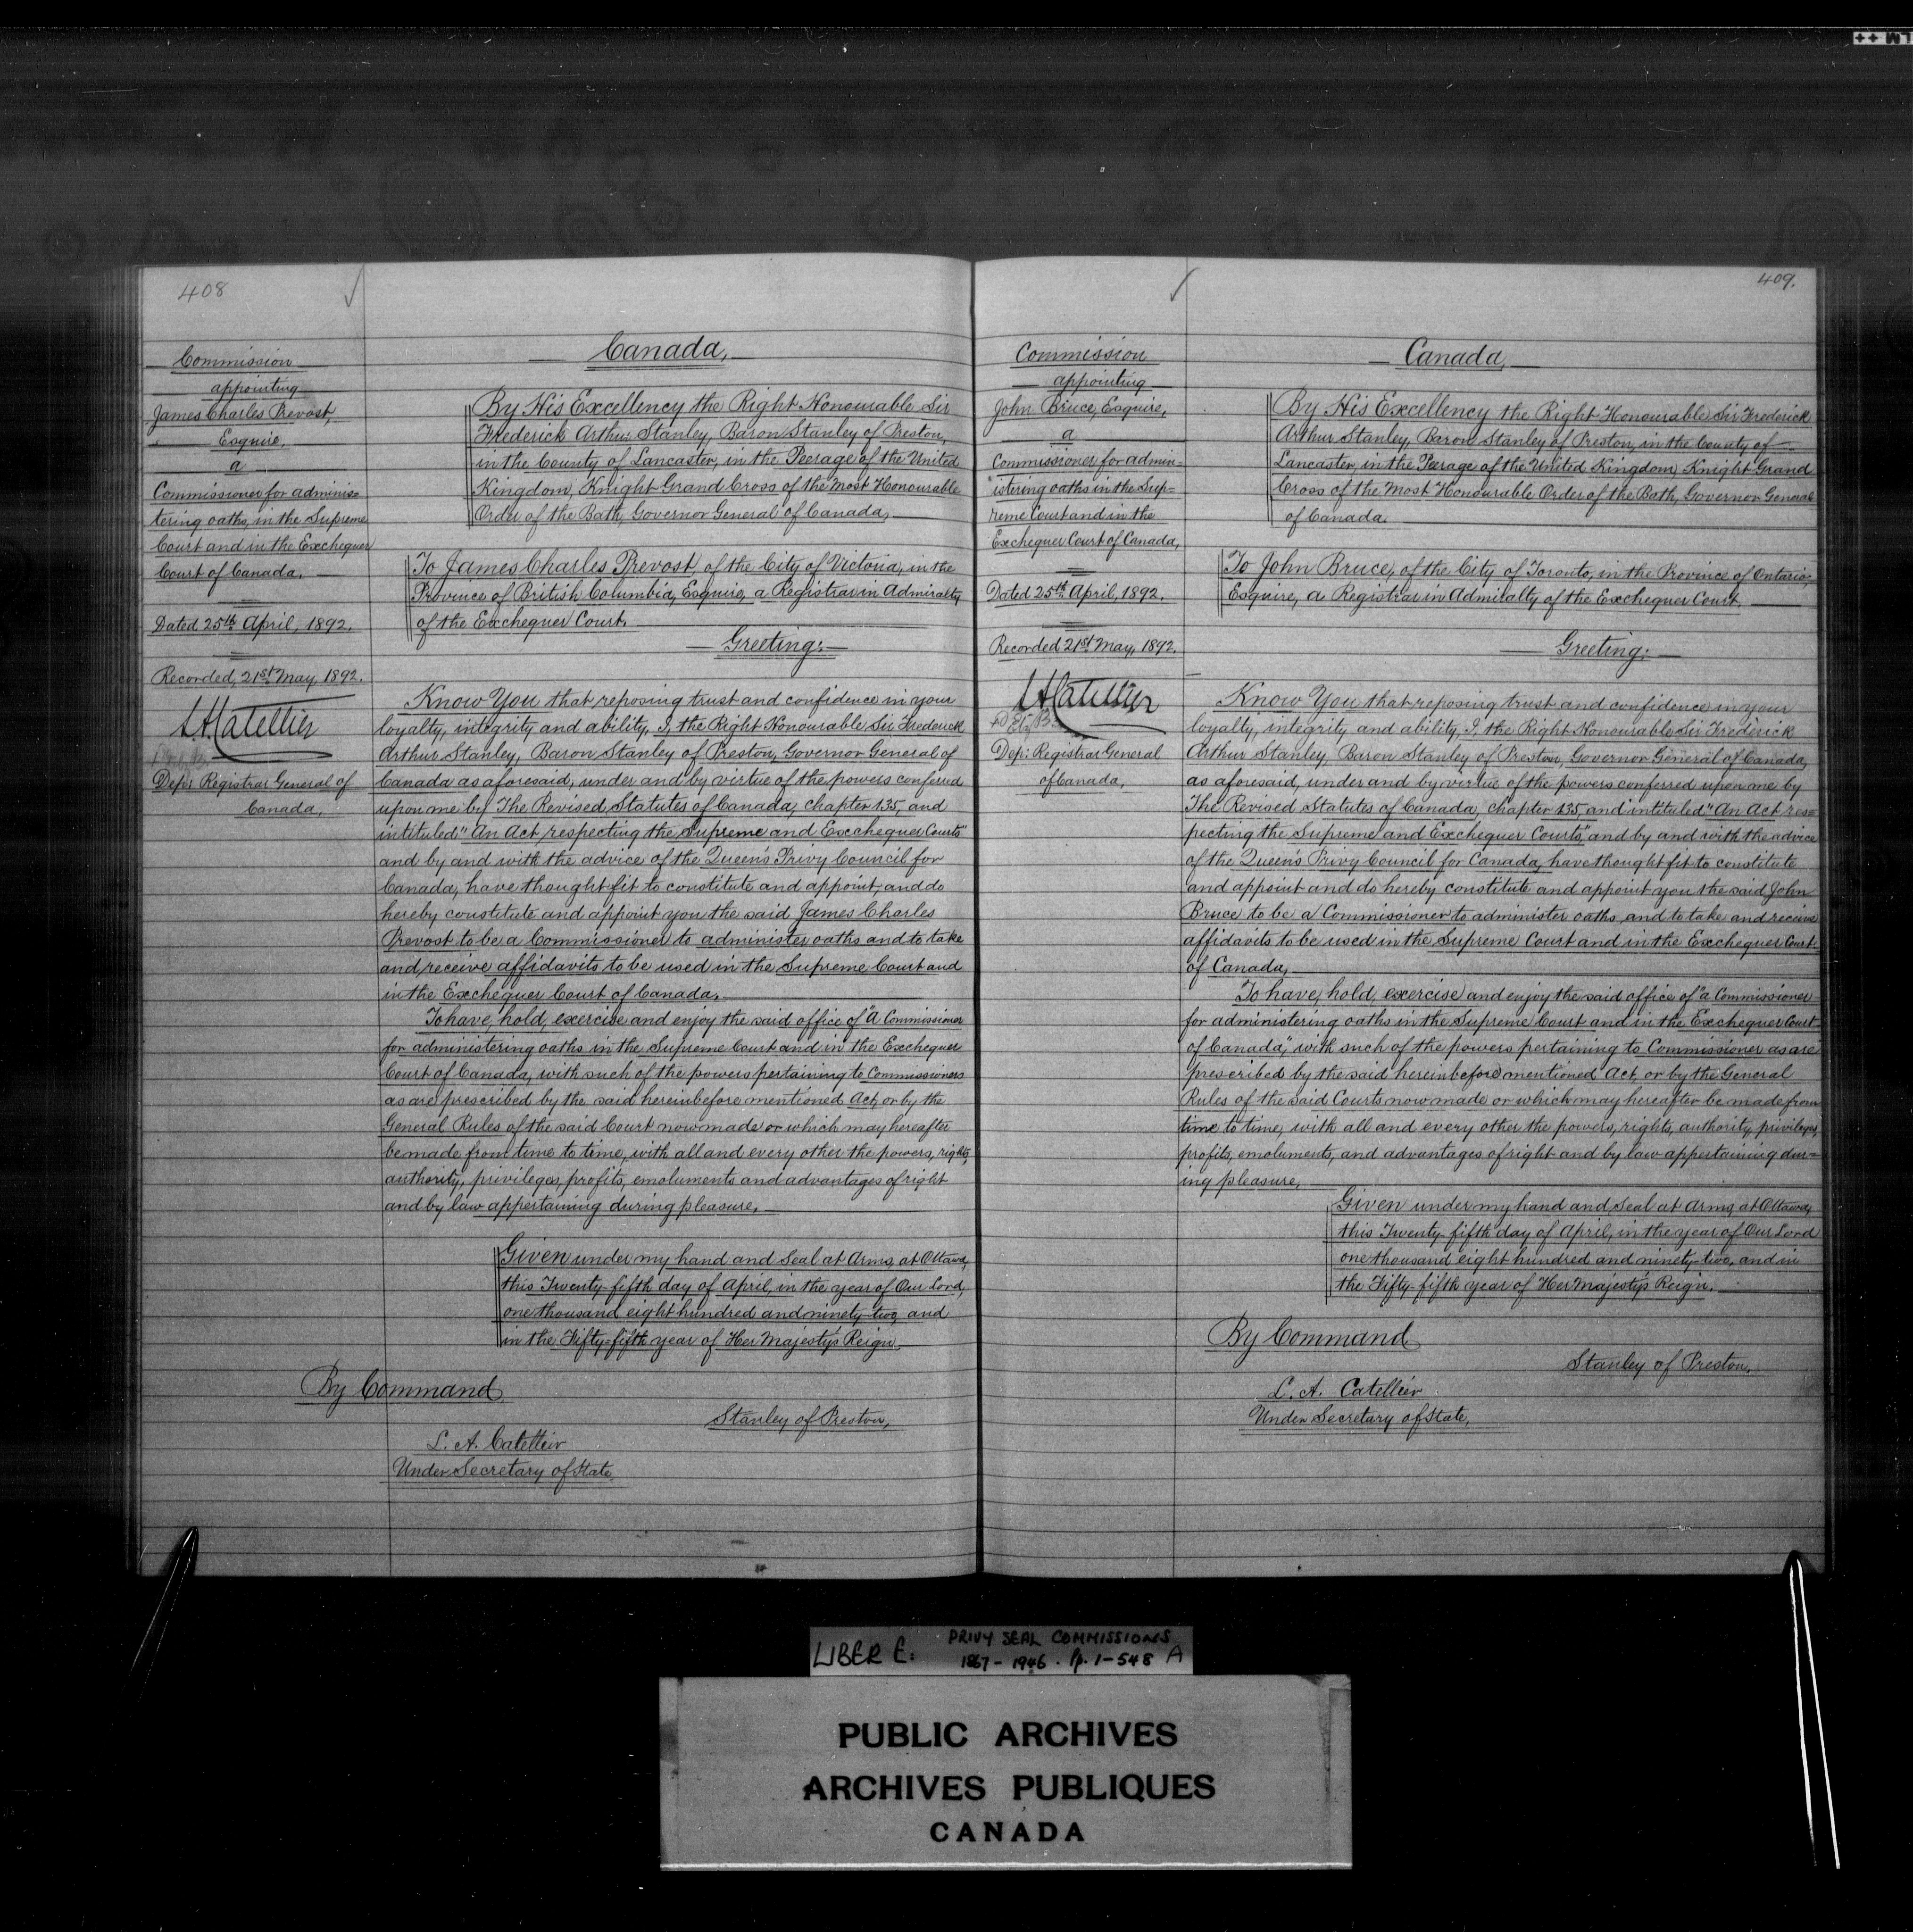 408
Commission
appointing
James Charles Prevost,
Esquire,
a
Commissioner for adminis=
tering oaths, in the Supreme
Court and in the Exchequer
Court of Canada.
Dated 25th April, 1892.
Recorded, 21st May, 1892.
L.A. Catellier
Dep: Registrar General of
Canada,
Canada,
By His Excellency the Right Honourable Sir
Frederick Arthur Stanley, Baron Stanley of Preston,
in the County of Lancaster, in the Peerage of the United
Kingdom, Knight Grand Cross of the Most Honourable
Order of the Bath, Governor General of Canada,
To James Charles Prevost of the City of Victoria, in the
Province of British Columbia, Esquire, a Registrar in Admiralty
of the Exchequer Court.
Greeting:
Know You that reposing trust and confidence in your
loyalty, integrity and ability, I, the Right Honourable Sir Frederick
Arthur Stanley, Baron Stanley of Preston, Governor General of
Canada as aforesaid, under and by virtue of the powers conferred
upon me by The Revised Statutes of Canada, chapter 135, and
intituled "An Act respecting the Supreme and Exchequer Courts"
and by and with the advice of the Queen's Privy Council for
Canada, have thought fit to constitute and appoint, and do
hereby constitute and appoint you the said James Charles
Prevost to be a Commissioner to administer oaths and to take
and receive affidavits to be used in the Supreme Court and
in the Exchequer Court of Canada.
To have, hold, exercise and enjoy the said office of "a Commissioner
for administering oaths in the Supreme Court and in the Exchequer
Court of Canada, with such of the powers pertaining to Commissioners
as are prescribed by the said hereinbefore mentioned Act, or by the
General Rules of the said Court now made or which may hereafter
be made from time to time, with all and every other the powers, rights,
authority, privileges, profits, emoluments and advantages of right
and by law appertaining during pleasure.
Given under my hand and Seal at Arms, at Ottawa,
this Twenty-fifth day of April, in the year of Our Lord,
one thousand eight hundred and ninety-two, and
in the Fifty=fifth year of Her Majesty's Reign.
By Command,
Stanley of Preston,
L. A. Catellier
Under Secretary of State.
409.
Commission
appointing
John Bruce, Esquire,
a
Commissioner for admin=
istering oaths in the Sup=
reme Court and in the
Exchequer Court of Canada,
Dated 25th April, 1892.
Recorded 21st May, 1892.
L.A. Catellier
Dep: Registrar General
of Canada,
Canada,
By His Excellency the Right Honourable Sir Frederick
Arthur Stanley, Baron Stanley of Preston, in the County of
Lancaster, in the Peerage of the United Kingdom, Knight Grand
Cross of the Most Honourable Order of the Bath, Governor General
of Canada.
To John Bruce, of the City of Toronto, in the Province of Ontario
Esquire, a Registrar in Admiralty of the Exchequer Court.
Greeting:
Know You that reposing trust and confidence in your
loyalty, integrity and ability, I, the Right Honourable Sir Frederick
Arthur Stanley, Baron Stanley of Preston, Governor General of Canada,
as aforesaid, under and by virtue of the powers conferred upon me by
The Revised Statutes of Canada, chapter 135, and intituled "An Act res=
pecting the Supreme and Exchequer Courts," and by and with the advice
of the Queen's Privy Council for Canada, have thought fit to constitute
and appoint and do hereby constitute and appoint you the said John
Bruce to be a Commissioner to administer oaths and to take and receive
affidavits to be used in the Supreme Court and in the Exchequer Court
of Canada,
To have, hold, exercise and enjoy the said office of "a Commissioner
for administering oaths in the Supreme Court and in the Exchequer Court
of Canada," with such of the powers pertaining to Commissioner as are
prescribed by the said hereinbefore mentioned Act, or by the General
Rules of the said Courts now made or which may hereafter be made from
time to time, with all and every other the powers, rights, authority, privileges,
profits, emoluments, and advantages of right and by law appertaining dur=
ing pleasure.
Given under my hand and Seal at Arms, at Ottawa,
this Twenty-fifth day of April, in the year of Our Lord
one thousand eight hundred and ninety-two, and in
the Fifty-fifth year of Her Majesty's Reign.
By Command
Stanley of Preston,
L. A. Catellier
Under Secretary of State,
LIBER E:
PRIVY SEAL COMMISSIONS
1867-1946. Pp. 1-548 A
PUBLIC ARCHIVES
ARCHIVES PUBLIQUES
CANADA